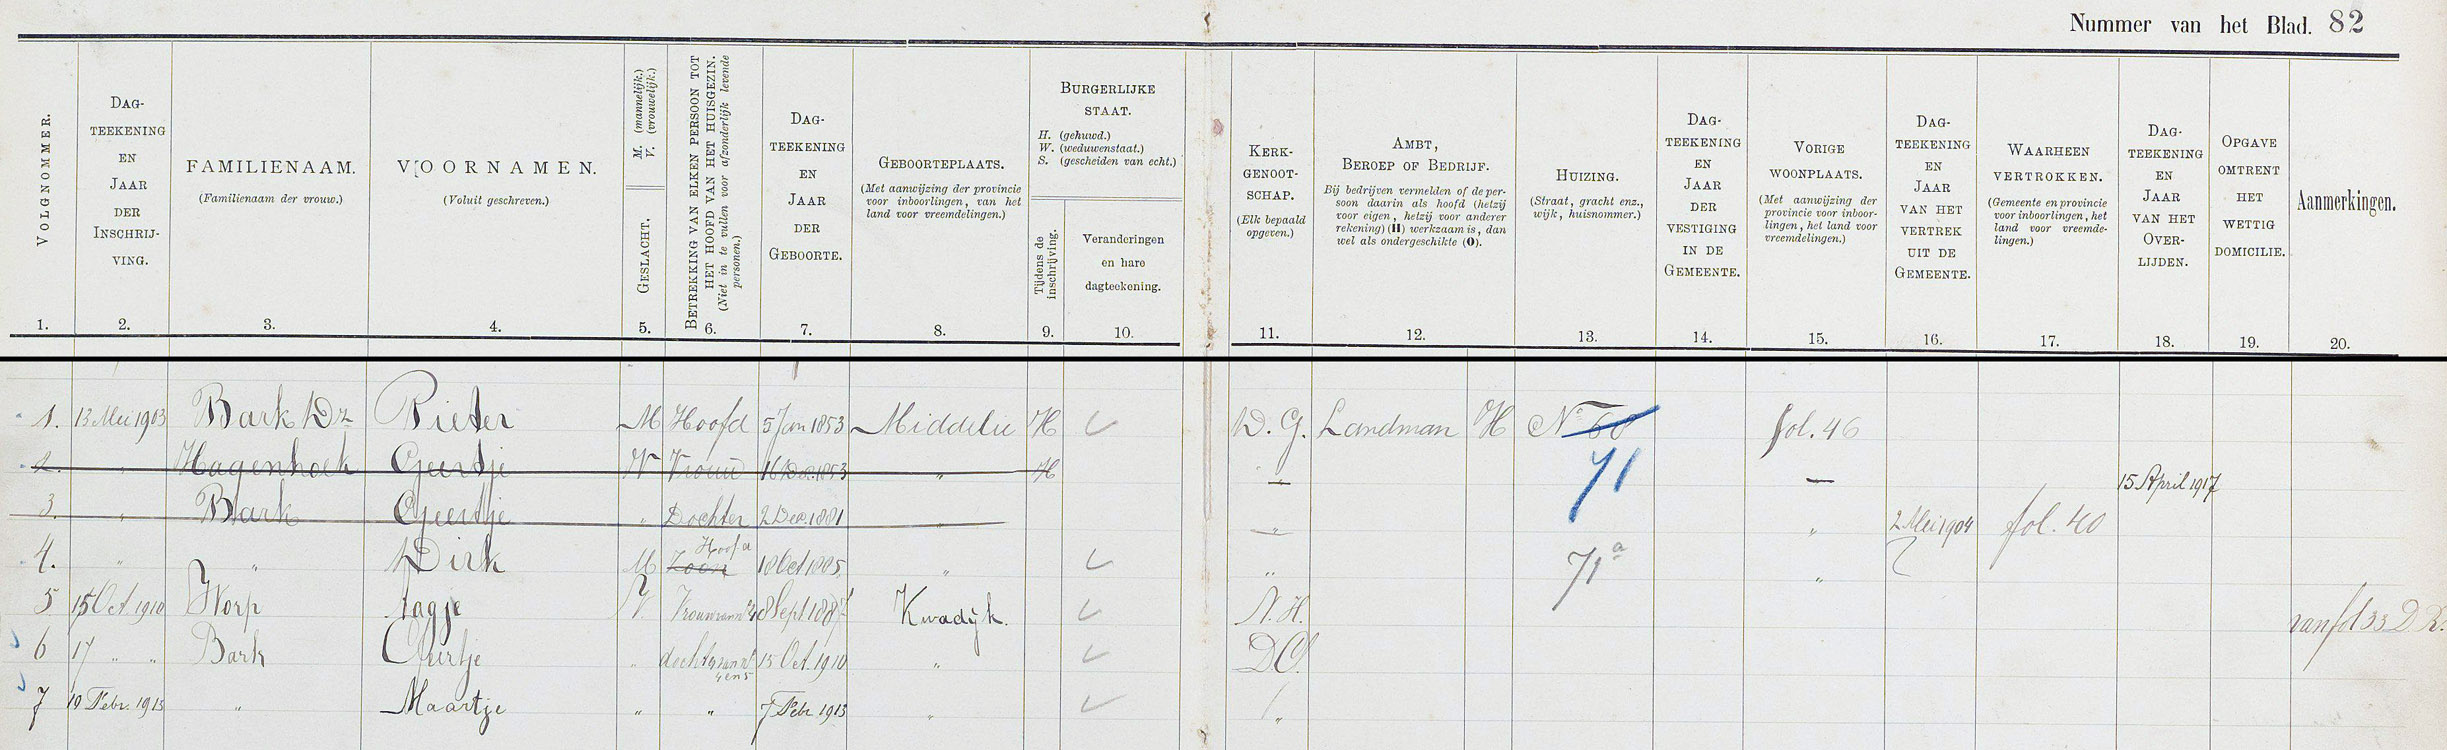 Nummer van het Blad. 82
VOLGNOMMER.
1.
DAG-
TEEKENING
EN
JAAR
DER
INSCHRIJ-
VING.
2.
FAMILIENAAM.
(Familienaam der vrouw.)
3.
VOORNAMEN.
(Voluit geschreven.)
4.
M. (mannelijk.)
V. (vrouwelijk.)
GESLACHT.
5.
BETREKKING VAN ELKEN PERSOON TOT
HET HOOFD VAN HET HUISGEZIN.
(Niet in te vullen voor afzonderlijk levende
personen.)
6.
DAG-
TEEKENING
EN
JAAR
DER
GEBOORTE.
7.
GEBOORTEPLAATS.
(Met aanwijzing der provincie
voor inboorlingen, van het
land voor vreemdelingen.)
8.
BURGERLIJKE
STAAT.
H. (gehuwd.)
W. (weduwenstaat.)
S. (gescheiden van echt.)
Tijdens de
inschrijving.
9.
Veranderingen
en hare
dagteekening.
10.
KERK-
GENOOT-
SCHAP.
(Elk bepaald
opgeven.)
11.
AMBT,
BEROEP OF BEDRIJF.
Bij bedrijven vermelden of de per-
soon daarin als hoofd (hetzij
voor eigen, hetzij voor anderer
rekening) (H) werkzaam is, dan
wel als ondergeschikte (O).
12.
HUIZING.
(Straat, gracht enz.,
wijk, huisnommer.)
13.
DAG-
TEEKENING
EN
JAAR
DER
VESTIGING
IN DE
GEMEENTE.
14.
VORIGE
WOONPLAATS.
(Met aanwijzing der
provincie voor inboor-
lingen, het land voor
vreemdelingen.)
15.
DAG-
TEEKENING
EN
JAAR
VAN HET
VERTREK
UIT DE
GEMEENTE.
16.
WAARHEEN
VERTROKKEN.
(Gemeente en provincie
voor inboorlingen, het
land voor vreemde-
lingen.)
17.
DAG-
TEEKENING
EN
JAAR
VAN HET
OVER-
LIJDEN.
18.
OPGAVE
OMTRENT
HET
WETTIG
DOMICILIE.
19.
Aanmerkingen.
20.
1. 13 Mei 1903 Bark Dz Pieter M Hoofd 5 Jan 1853 Middelie H D. G. Landman H No 68 fol. 46
2. " Hagenhoek Geertje V Vrouw 16 Dec. 1853 " H " 71 — 15 April 1917
3. " Bark Geertje " Dochter 2 Dec. 1881 " " " 2 Mei 1904 fol. 40
4. " " Dirk M Zoon Hoofd 18 Oct 1885 " " 71a "
5 15 Oct. 1910 Worp Aagje V Vrouw van No 4 8 Sept 1887 Kwadijk. N. H. van fol 33 D. R.
6 17 " " Bark Geertje " dochter van No 4 en 5 15 Oct. 1910 " D.G.
7 19 Febr. 1913 " Maartje " " 7 Febr 1913 " "